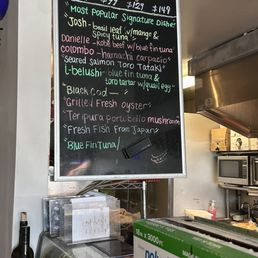 $129 $149
"Most Popular Signature Dishes"
Josh- basil leaf w/mango &
spicy tuna
Danielle -kobe beef w/blue fin tuna
colombo- hamachi carpacio
"Seared salmon "Toro Tataki"
L-belushi- blue fin tuna &
toro tartar w/quail egg
"Black Cod
"Grilled Fresh oyster
"Teripura portobello mushroom
"Fresh Fish From Japan
"Blue Fin Tuna/